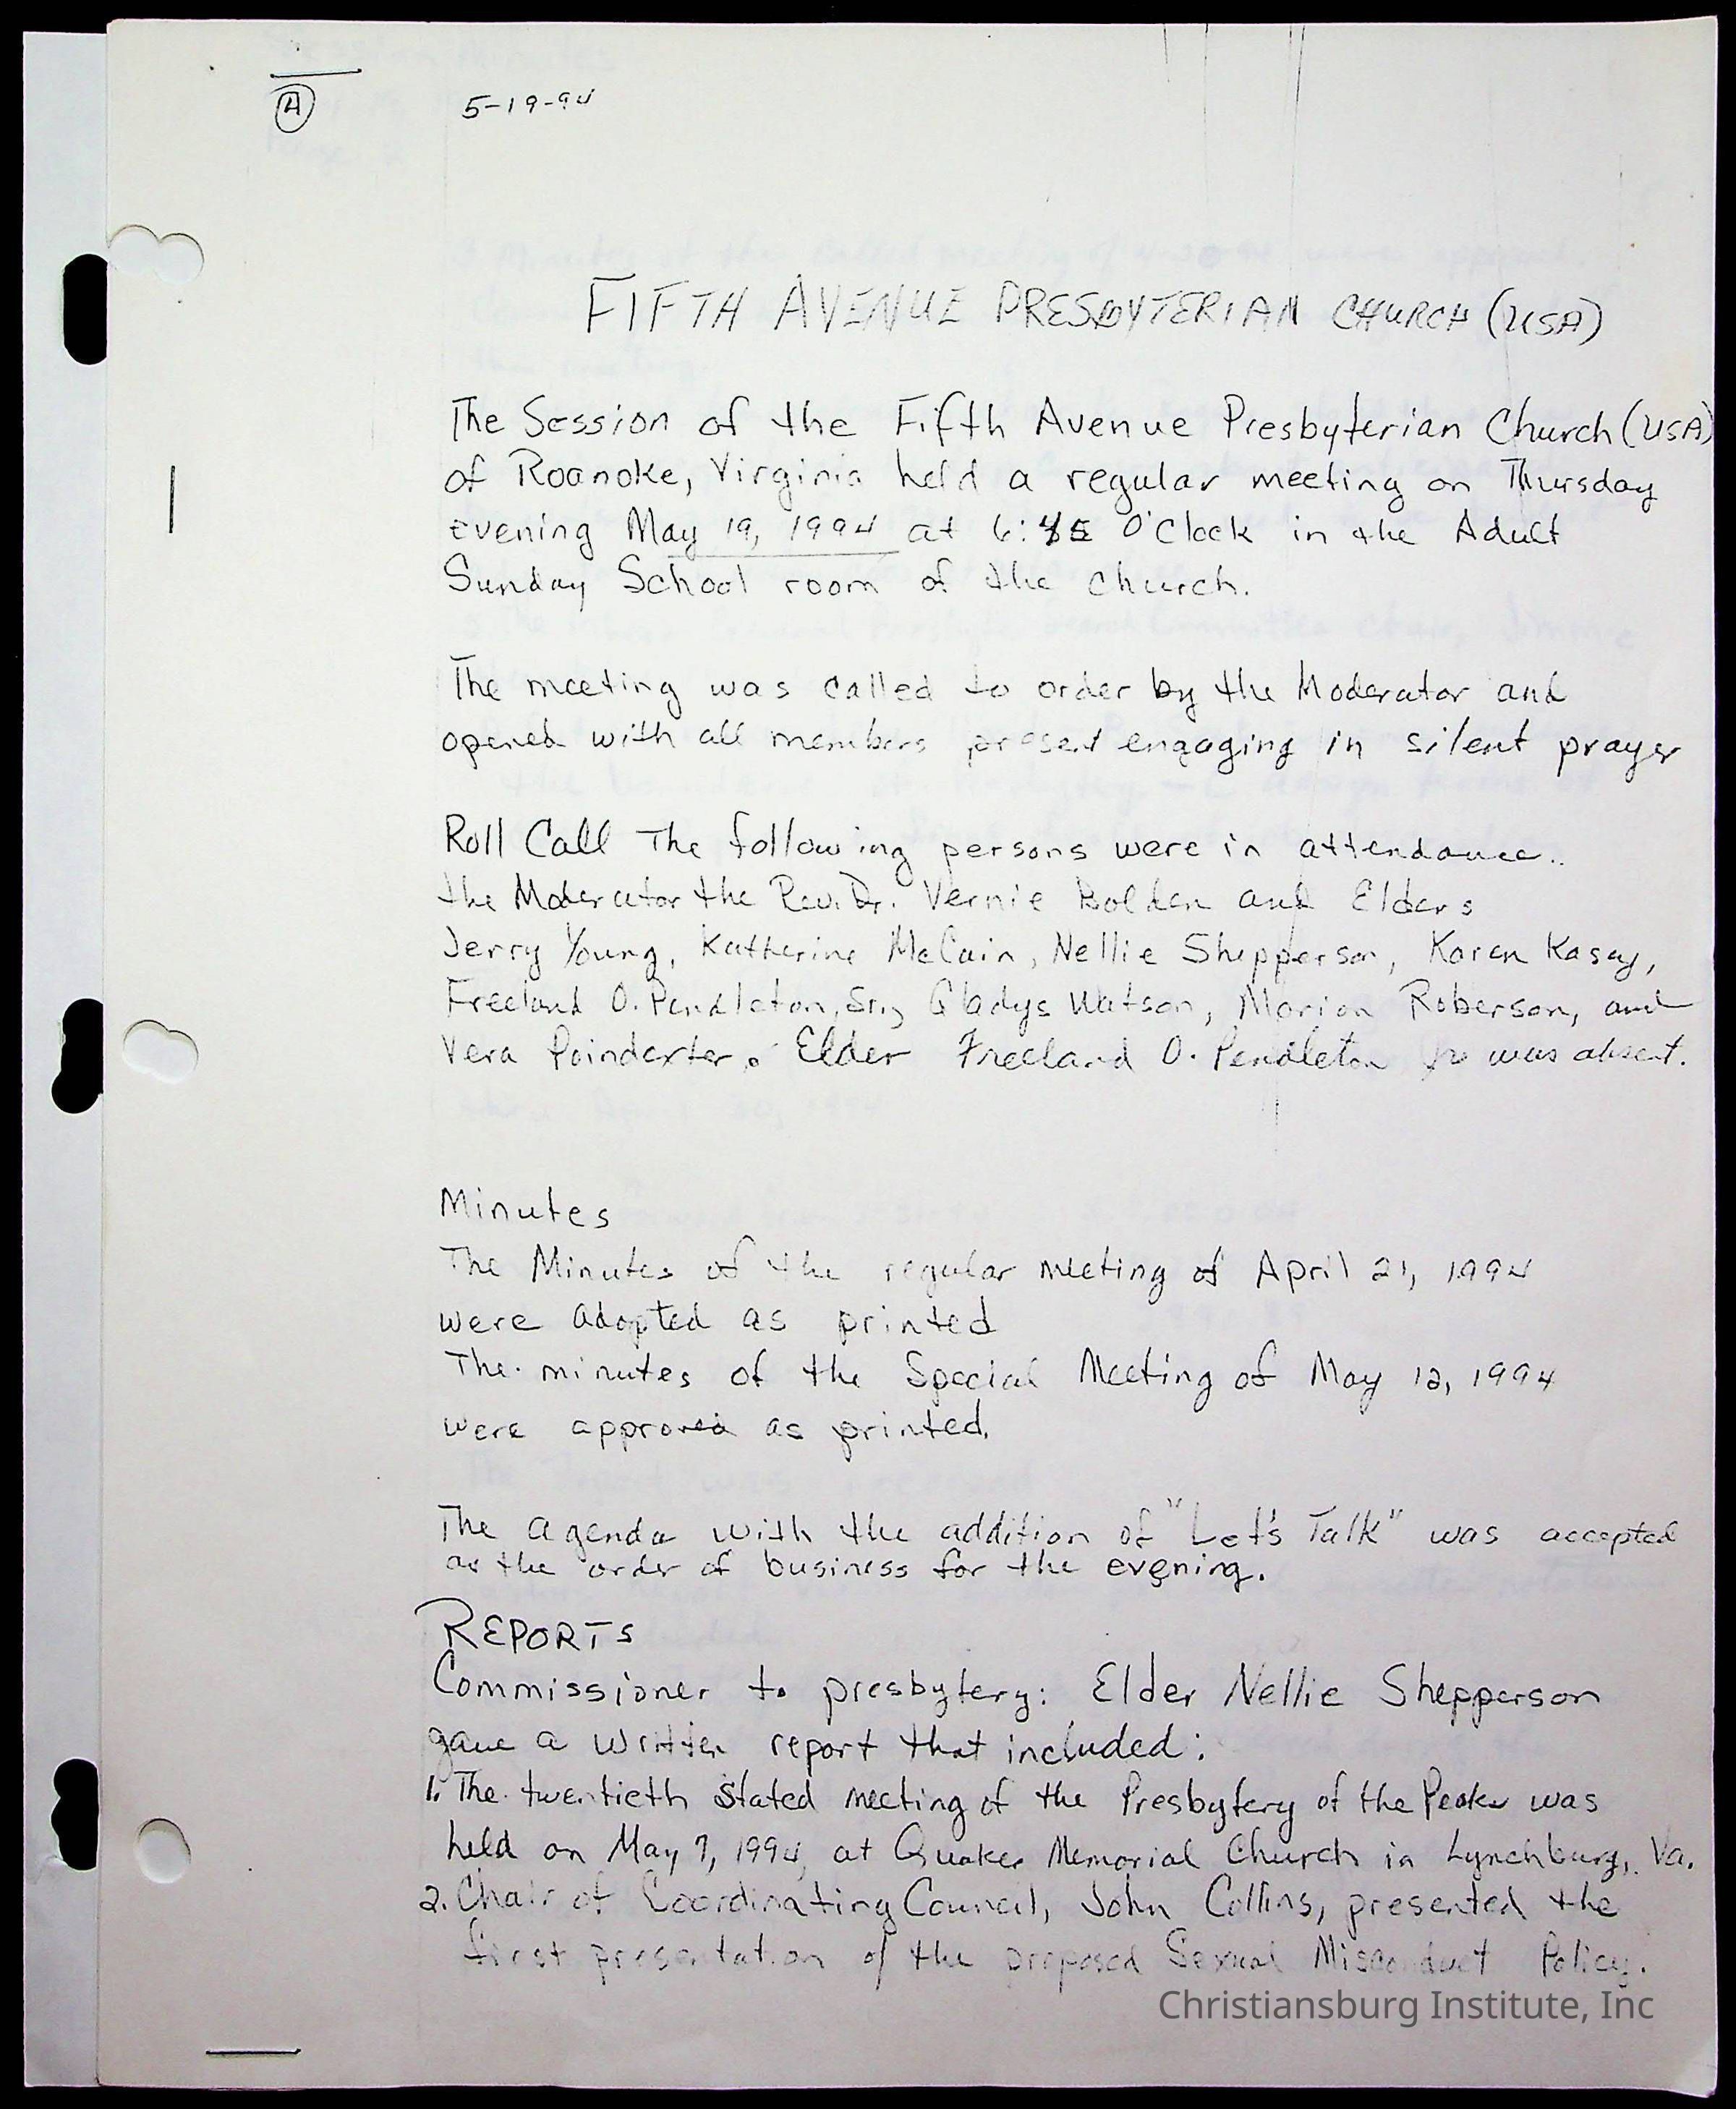 4 5-19-94
FIFTH AVENUE PRESBYTERIAN CHURCH (USA)
The Session of the Fifth Avenue Presbyterian Church (USA)
of Roanoke, Virginia held a regular meeting on Thursday
evening May 19, 1994 at 6:45 O'Clock in the Adult
Sunday School room of the church.
The meeting was called to order by the Moderator and
opened with all members present engaging in silent prayer
Roll Call The following persons were in attendance..
the Moderator the Rev. Dr. Vernie Bolden and Elders
Jerry Young, Katherine McCain, Nellie Shepperson, Karen Kasey,
Freeland O. Pendleton, Sr., Gladys Watson, Marion Roberson, and
Vera Poindexter. Elder Freeland O. Pendleton Jr was absent.
Minutes
The Minutes of the regular meeting of April 21, 1994
were adopted as printed
The minutes of the Special Meeting of May 12, 1994
were approved as printed.
The agenda with the addition of "Let's Talk" was accepted
as the order of business for the evening.
REPORTS
Commissioner to presbytery: Elder Nellie Shepperson
gave a written report that included:
1. The twentieth Stated meeting of the Presbytery of the Peaks was
held on May 7, 1994, at Quaker Memorial Church in Lynchburg, Va.
2. Chair of Coordinating Council, John Collins, presented the
first presentation of the proposed Sexual Misconduct Policy.
Christiansburg Institute, Inc